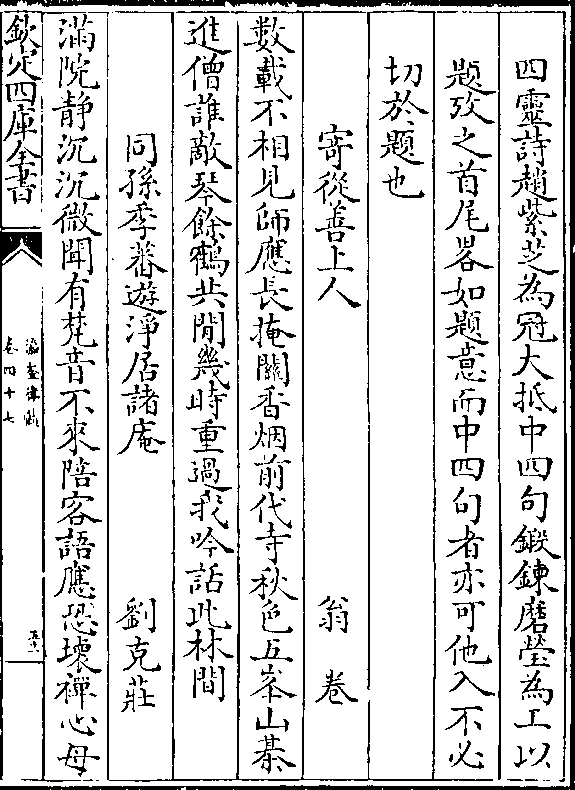 四靈詩趙紫芝為冠大抵中四句鍛鍊磨瑩為工以
題攷之首尾畧如題意而中四句者亦可他入不必
切於題也
寄從善上人　翁卷
數載不相見師應長掩關香烟前代寺秋色五峯山棊
進僧誰敵琴餘鶴共閒幾時重過我吟話此林間
同孫季蕃遊淨居諸庵　劉克莊
滿院静沉沉微聞有梵音不來陪客語應恐壞禪心母
欽定四庫全書
瀛奎律髓
卷四十七